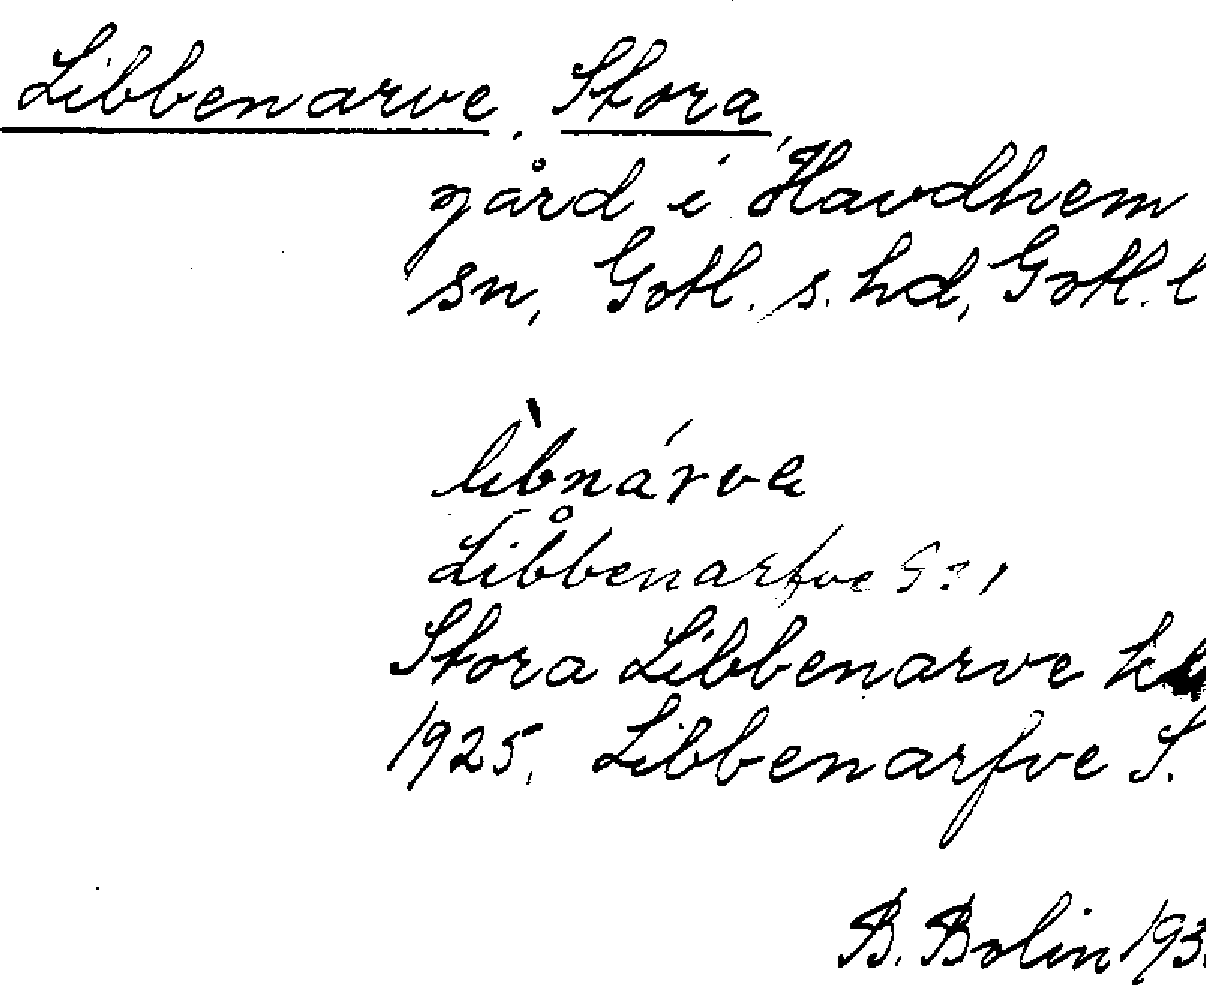 Libbenarve, Stora,
gård i Havdhem
sn, Gotl. s. hd, Gotl. l
Libbenarfve
Stora Libbenarve
1925, Libbenarfve S.
B. Bolin 193